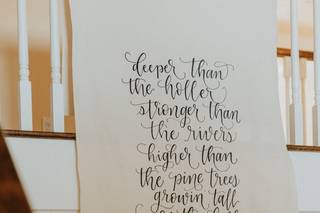 deeper than
the holler
stronger than
the rivers
higher than
the pine trees
growin tall